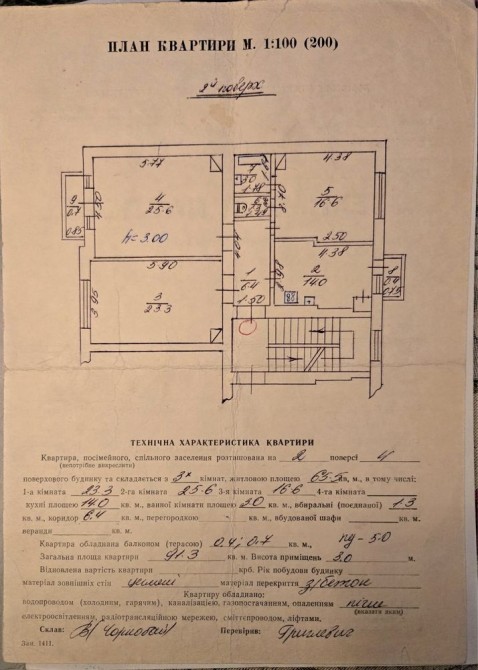 ПЛАН КВАРТИРИ М. 1:100 (200)
2й поверх
5.77
4.38
4
25.6
5
16.6
3.0
9
0.7
0.85
h=3.00
5.90
2.50
4.38
3
23.3
3.95
1
6.4
1.50
2
14.0
8
0.4
0.75
ТЕХНІЧНА ХАРАКТЕРИСТИКА КВАРТИРИ
Квартира, посімейного, спільного заселення розташована на 2 поверсі 4
(непотрібне викреслити)
поверхового будинку та складається з 3х кімнат, житловою площею 65.5 кв. м, в тому числі:
1-а кімната 23.3 2-га кімната 25.6 3-я кімната 16.6 4-та кімната
кв. м., кухні площею 14.0 кв. м, ванної кімнати площею 3.0 кв. м., вбиральні (поєднаної) 1.3
кв. м, коридор 6.4 кв. м., перегородкою кв. м., вбудованої шафи кв. м,
веранди кв. м.
Квартира обладнана балконом (терасою) 0.4; 0.7 кв. м., пд - 5.0
Загальна площа квартири 91.3 кв. м. Висота приміщень 3.0 м.
Відновлена вартість квартири крб. Рік побудови будинку
матеріал зовнішніх стін матеріал перекриття з/бетон
Квартиру обладнано:
водопроводом (холодним, гарячим), каналізацією, газопостачанням, опаленням пічне
(вказати яким)
електроосвітленням, радіотрансляційною мережею, сміттєпроводом, ліфтами,
Склав: Перевірив:
Зам. 1411.